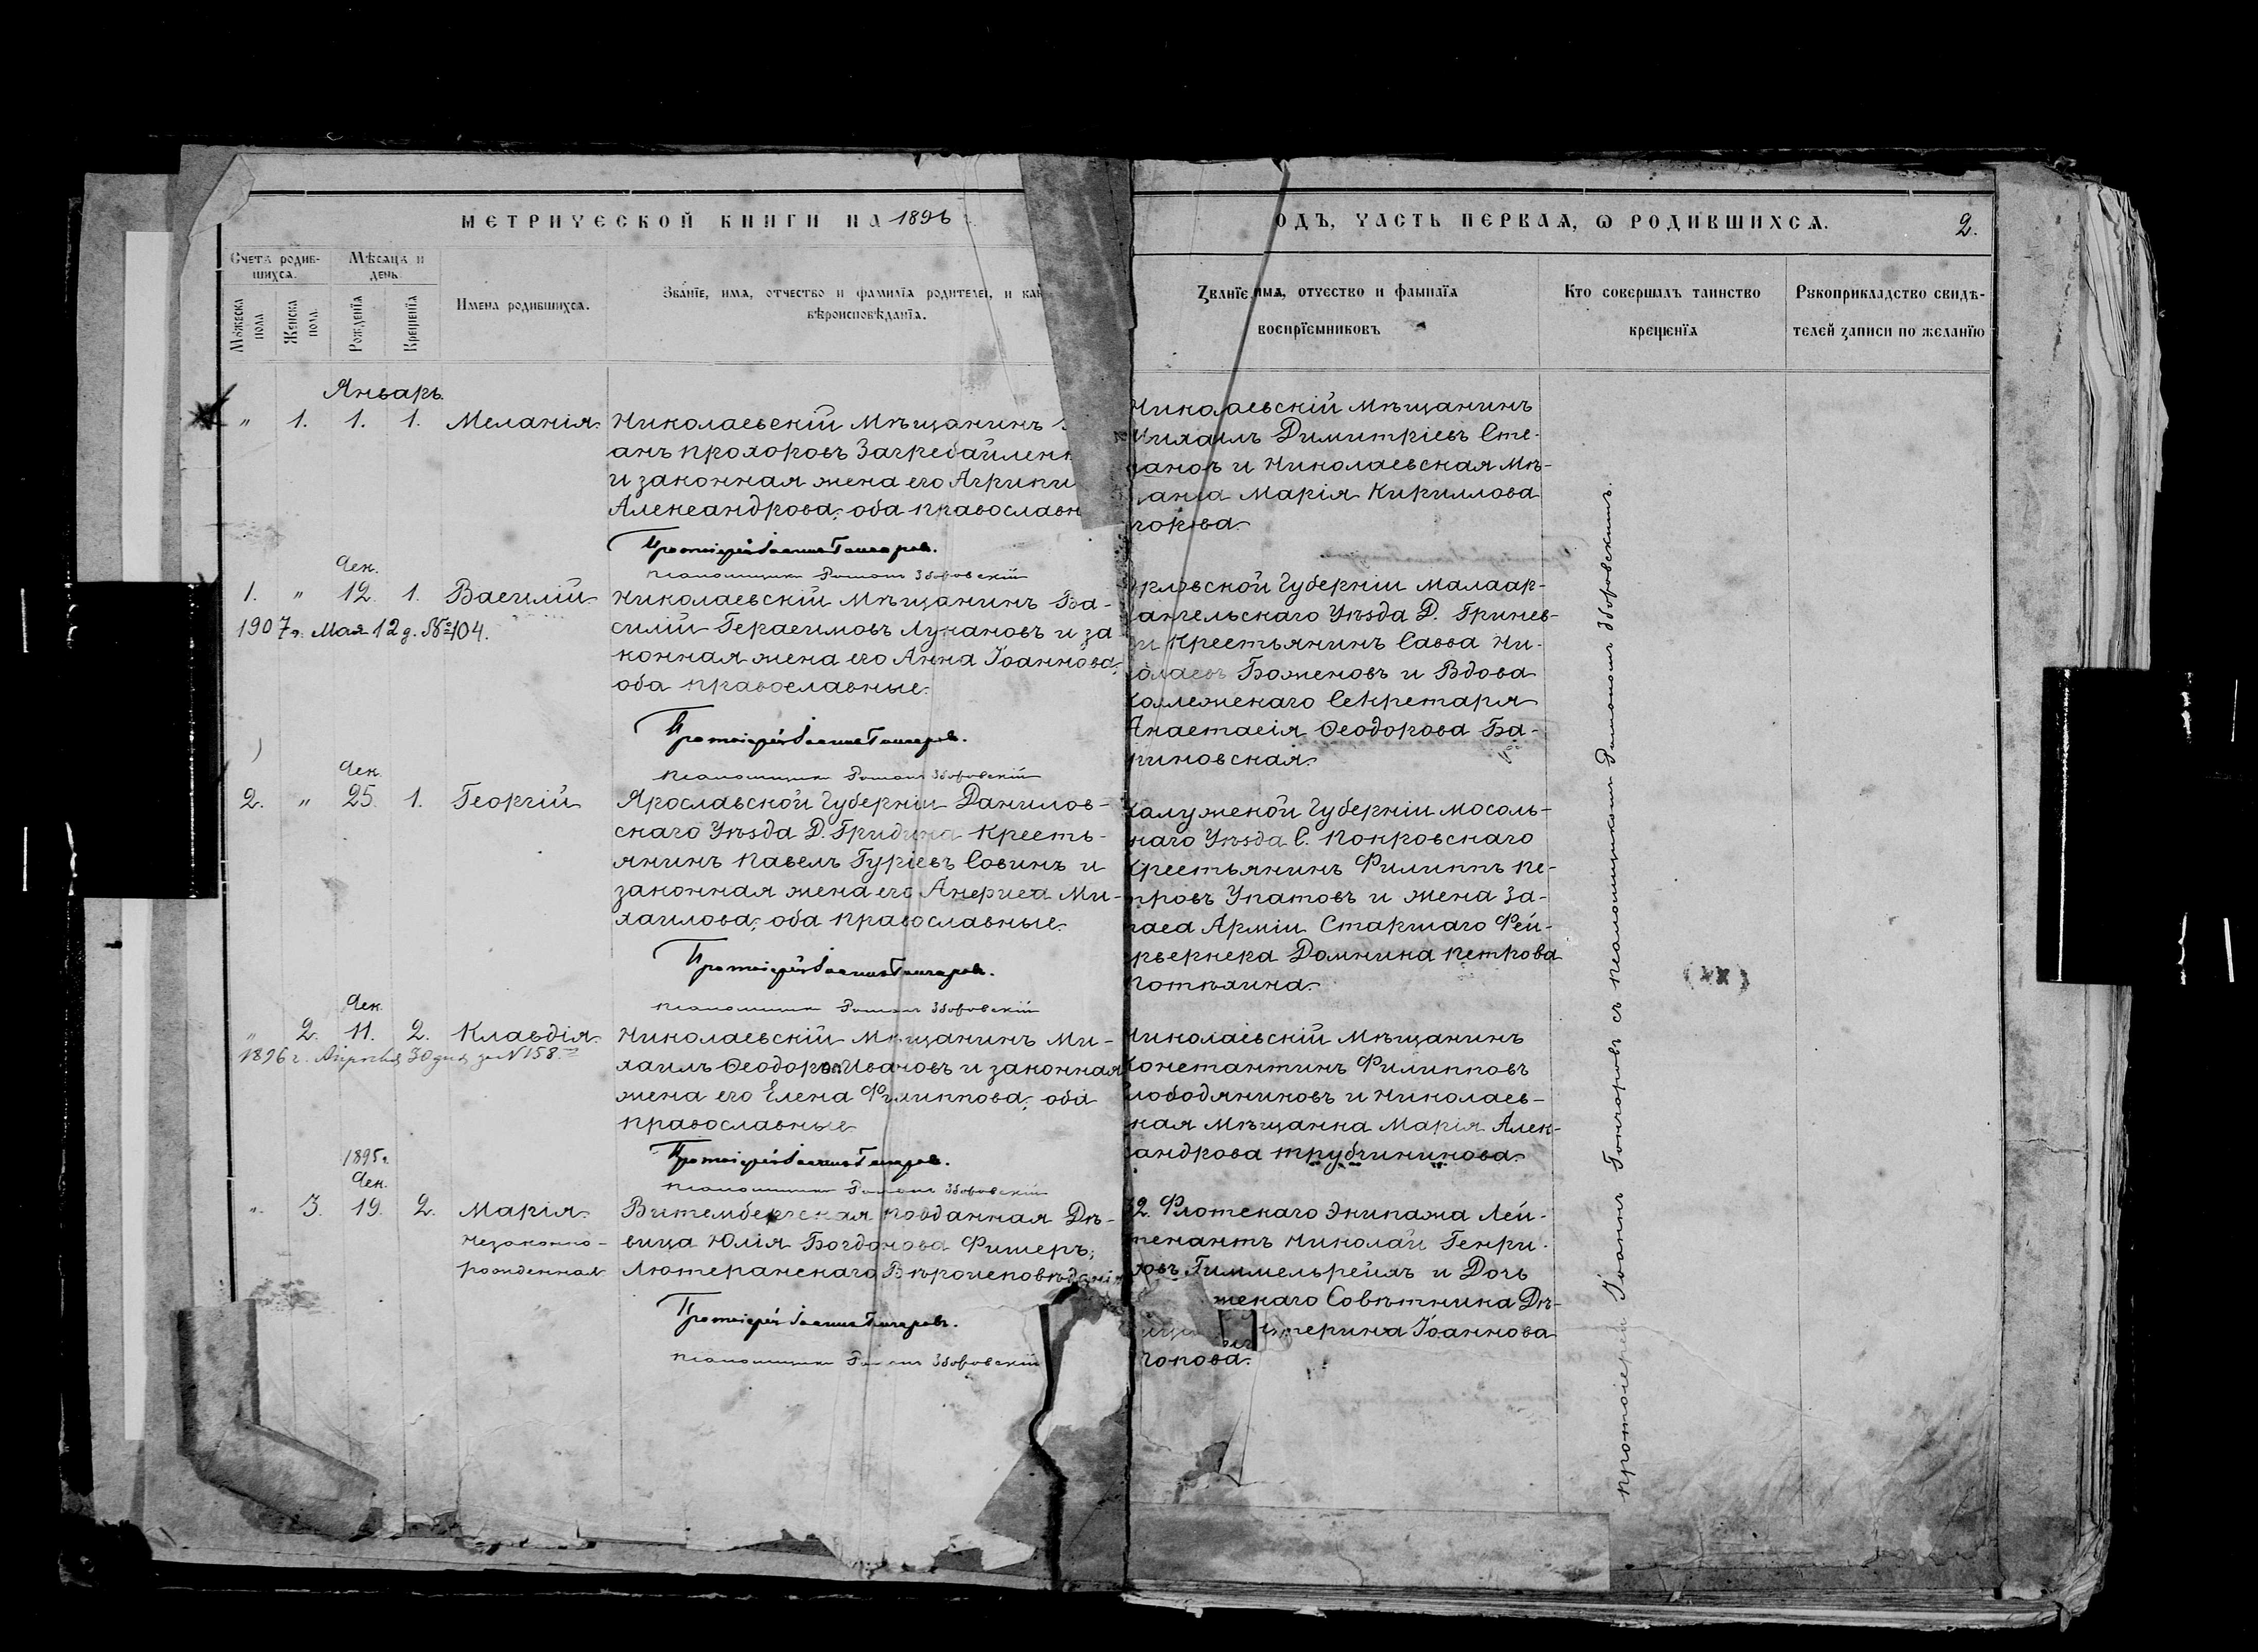 МЕТРИЧЕСКОЙ КНИГИ НА 1896
ОДЪ, ЧАСТЬ ПЕРВАЯ, Ѡ РОДИВШИХСЯ.
2.
Счетъ родив-
шихся.
Мѣсяцъ и
день
Мужеска
пола
Женска
пола.
Рожденїя
Крещенїя
Имена родившихся.
Званїе, имя, отчество и фамилїя родителей, и
вѣроисповѣданїя.
Званїе, имя, отчество и фамилїя
воспрїемниковъ
Кто совершалъ таинство
крещенїя
Рукоприкладство свидѣ-
телей записи по желанїю
Январь.
" 1. 1. 1. Меланія.
Николаевскій Мѣщанинъ
анъ Прохоровъ
и законная жена его
Александрова, оба
Протоіерей Іоаннъ Гончаровъ.
Псаломщикъ Романъ Зборовскій
Николаевскій Мѣщанинъ
Михаилъ Димитріевъ Сте-
пановъ и Николаевская Мѣ-
щанка Марія Кириллова
Дек.
1. " 12. 1. Василій.
1907 г. Мая 12 д. № 404.
Николаевскій Мѣщанинъ Ва-
силій Герасимовъ Лукановъ и за-
конная жена его Анна Іоаннова,
оба православные.
Протоіерей Іоаннъ Гончаровъ.
Псаломщикъ Романъ Зборовскій
Орловской Губерніи Малаар-
хангельскаго Уѣзда Д. Гринев-
ки Крестьянинъ Савва Ни-
колаевъ Боженовъ и Вдова
Коллежскаго Секретаря
Анастасія Ѳеодорова Ба-
риновская.
Дек.
2. " 25. 1. Георгій
Ярославской Губерніи Данилов-
скаго Уѣзда Д. Гридина Кресть-
янинъ Павелъ Гуріевъ Совинъ и
законная жена его Анѳиса Ми-
хаилова, оба православные.
Протоіерей Іоаннъ Гончаровъ.
Псаломщикъ Романъ Зборовскій
Калужской Губерніи Мосаль-
скаго Уѣзда С. Покровскаго
Крестьянинъ Филиппъ Пе-
тровъ Упатовъ и жена За-
паса Арміи Старшаго Фей-
ерверкера Домнина Петрова
Потѣхина.
Дек.
" 2. 11. 2. Клавдія.
1896 г. Апрѣля 30 дня за № 158.
Николаевскій Мѣщанинъ Ми-
хаилъ Ѳеодоровъ Ивановъ и законная
жена его Елена Филиппова, оба
православные
Протоіерей Іоаннъ Гончаровъ.
Псаломщикъ Романъ Зборовскій
Николаевскій Мѣщанинъ
Константинъ Филипповъ
Слободяниковъ и Николаев-
ская Мѣщанка Марія Алек-
сандрова Трубчининова.
1895 г.
Дек.
" 3. 19. 2. Марія.
Незаконно-
рожденная
Витембергская подданная Дѣ-
вица Юлія Богданова Фишеръ,
Лютеранскаго Вѣроисповѣданія
Протоіерей Іоаннъ Гончаровъ.
Псаломщикъ Романъ Зборовскій
32. Флотскаго Экипажа Лей-
тенантъ Николай Генри-
ховъ Гиммельрейхъ и Дочь
Совѣтника Дѣ-
Іоаннова
Протоіерей Іоаннъ Гончаровъ съ псаломщикомъ Романомъ Зборовскимъ.